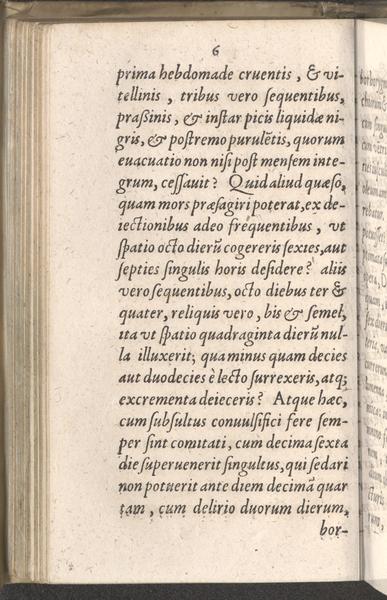 6
prima hebdomade cruentis, & vi-
tellinis, tribus vero ſequentibus,
praſsinis, & inſtar picis liquidæ ni-
gris, & poſtremo purulẽtis, quorum
euacuatio non niſi poſt menſem inte-
grum, ceſſauit? Quid aliud quæſo,
quam mors præſagiri poterat, ex de-
iectionibus adeo frequentibus, vt
ſpatio octo dierũ cogereris ſexies, aut
ſepties ſingulis horis deſidere? aliis
vero ſequentibus, octo diebus ter &
quater, reliquis vero, bis & ſemel,
ita vt ſpatio quadraginta dierũ nul-
la illuxerit; qua minus quam decies
aut duodecies è lecto ſurrexeris, atq;
excrementa deieceris? Atque hæc,
cum ſubſultus conuulſifici fere ſem-
per ſint comitati, cum decima ſexta
die ſuperuenerit ſingultus, qui ſedari
non potuerit ante diem decimã quar
tam, cum delirio duorum dierum,
bor-